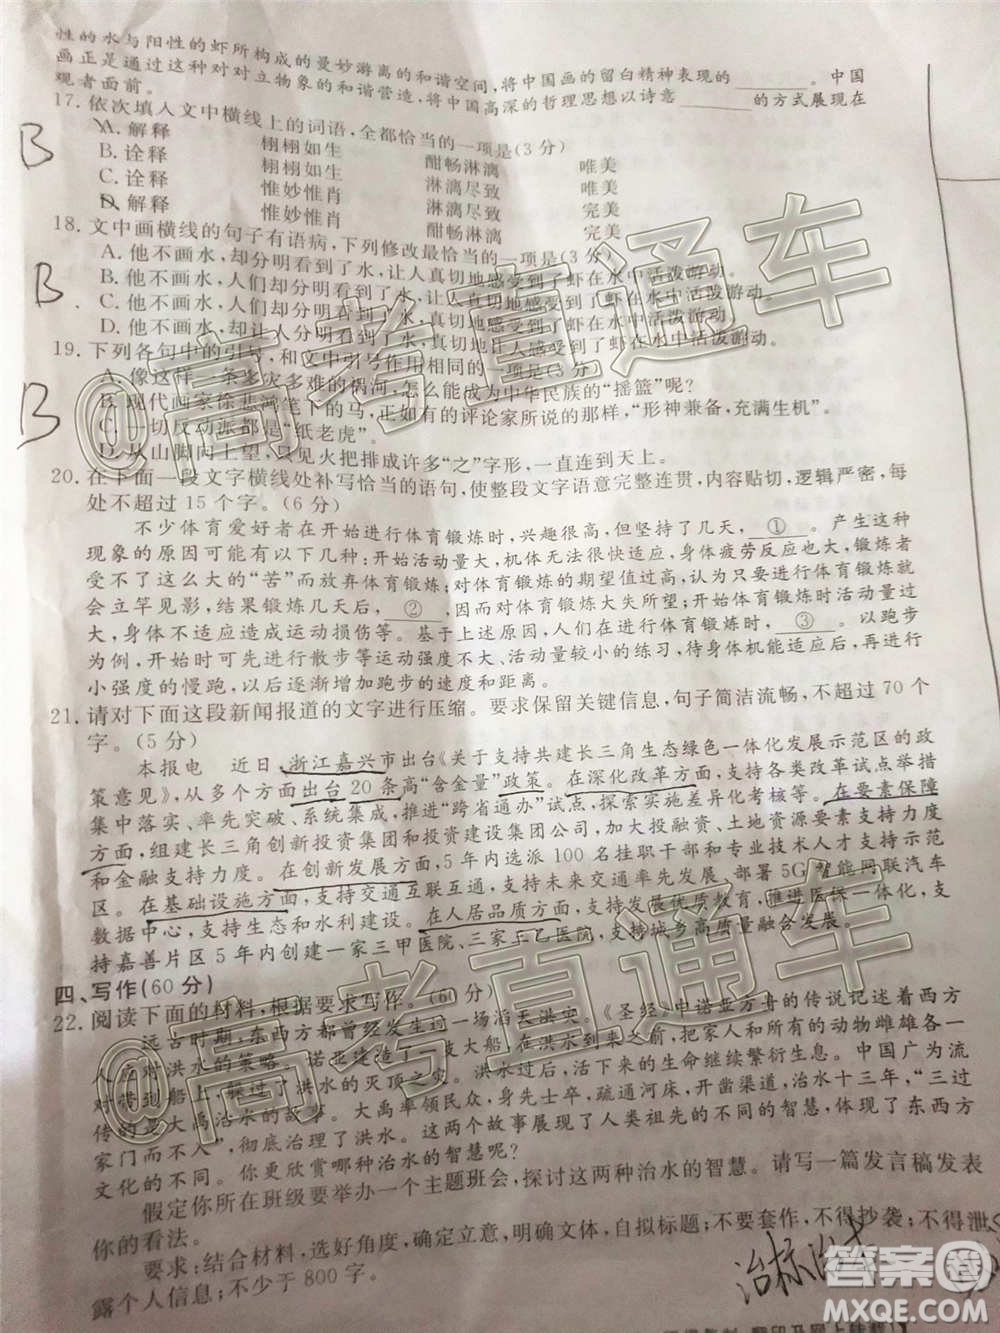 性的水与阳性的虾所构成的曼妙游离的和谐空间,将中国画的留白精神表现的______。中国
画正是通过这种对对立物象的和谐营造,将中国高深的哲理思想以诗意______的方式展现在
观者面前。
17.依次填入文中横线上的词语,全都恰当的一项是(3分)
A.解释 栩栩如生 酣畅淋漓 唯美
B.诠释 栩栩如生 淋漓尽致 唯美
C.诠释 惟妙惟肖 淋漓尽致 完美
D.解释 惟妙惟肖 酣畅淋漓 完美
B
18.文中画横线的句子有语病,下列修改最恰当的一项是(3分)
A.他不画水,却分明看到了水,让人真切地感受到了虾在水中活泼游动。
B.他不画水,人们却分明看到了水,让人真切地感受到了虾在水中活泼游动。
C.他不画水,人们却分明看到了水,真切地感受到了虾在水中活泼游动。
D.他不画水,却让人分明看到了水,真切地感受到了虾在水中活泼游动。
B
19.下列各句中的引号,和文中引号作用相同的一项是(3分)
A.像这样一条多灾多难的祸河,怎么能成为中华民族的“摇篮”呢?
B.现代画家徐悲鸿笔下的马,正如有的评论家所说的那样,“形神兼备,充满生机”。
C.一切反动派都是“纸老虎”。
D.从山脚向上望,只见火把排成许多“之”字形,一直连到天上。
B
20.在下面一段文字横线处补写恰当的语句,使整段文字语意完整连贯,内容贴切,逻辑严密,每
处不超过15个字。(6分)
不少体育爱好者在开始进行体育锻炼时,兴趣很高,但坚持了几天,①。产生这种
现象的原因可能有以下几种:开始活动量大,机体无法很快适应,身体疲劳反应也大,忍
受不了这么大的“苦”而放弃体育锻炼;对体育锻炼的期望值过高,认为只要进行体育锻炼就
会立竿见影,结果锻炼几天后,②,因而对体育锻炼大失所望;开始体育锻炼时活动量过
大,身体不适应造成运动损伤等。基于上述原因,人们在进行体育锻炼时,③。以跑步
为例,开始时可先进行散步等运动强度不大、活动量较小的练习,待身体机能适应后再进行
小强度的慢跑,以后逐渐增加跑步的速度和距离。
21.请对下面这段新闻报道的文字进行压缩。要求保留关键信息,句子简洁流畅,不超过70个
字。(5分)
本报电 近日,浙江嘉兴市出台《关于支持共建长三角生态绿色一体化发展示范区的政
策意见》,从多个方面出台20条高“含金量”政策。在深化改革方面,支持各类改革试点举措
集中落实、率先突破、系统集成,推进“跨省通办”试点,探索实施差异化考核等。在要素保障
方面,组建长三角创新投资集团和投资建设集团公司,加大投融资、土地资源要素支持力度
和金融支持力度。在创新发展方面,5年内选派100名挂职干部和专业技术人才支持示范
区。在基础设施方面,支持交通互联互通,支持未来交通率先发展,部署5G智能网联汽车
数据中心,支持生态和水利建设。在人居品质方面,支持发展优质教育,推进医保一体化,支
持嘉善片区5年内创建一家三甲医院、三家三乙医院,支持城乡高质量融合发展。
四、写作(60分)
22.阅读下面的材料,根据要求写作。(60分)
远古时期,东西方都曾经发生过一场滔天洪灾。《圣经》中诺亚方舟的传说记述着西方
人应对洪水的策略。诺亚建造了一艘大船,在洪水到来之前,把家人和所有的动物雌雄各一
对带到船上,躲过了洪水的灭顶之灾。洪水过后,活下来的生命继续繁衍生息。中国广为流
传的是大禹治水的故事。大禹率领民众,身先士卒,疏通河床,开凿渠道,治水十三年,“三过
家门而不入”,彻底治理了洪水。这两个故事展现了人类祖先的不同的智慧,体现了东西方
文化的不同。你更欣赏哪种治水的智慧呢?
假定你所在班级要举办一个主题班会,探讨这两种治水的智慧。请写一篇发言稿发表
你的看法。
要求:结合材料,选好角度,确定立意,明确文体,自拟标题;不要套作,不得抄袭;不得泄
露个人信息;不少于800字。
治标治本
@高考直通车
@高考直通车
答案圈
MXQE.COM